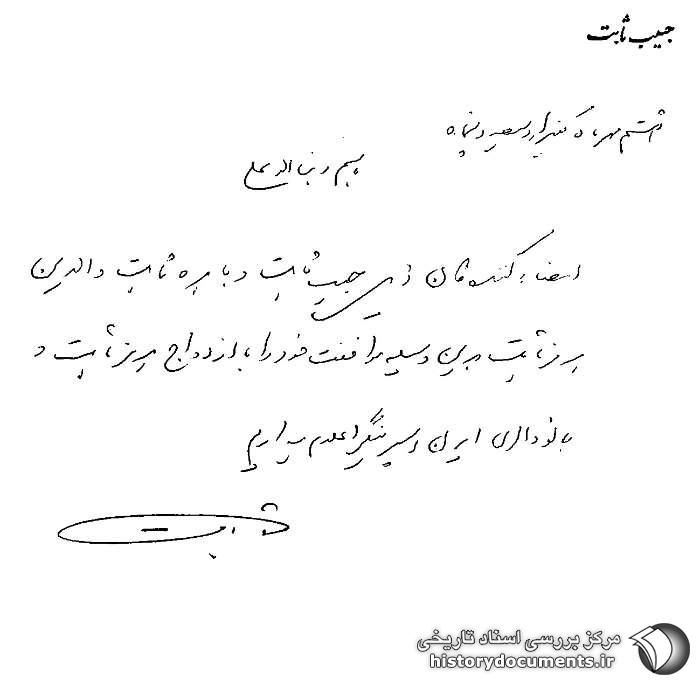 حبیب ثابت
هشتم مهرماه یکهزار و سیصد و پنجاه
بسم ربنا العلی
امضاء کنندگان ذیل حبیب ثابت و باهره ثابت والدین
هرمز ثابت بدین وسیله موافقت خود را با ازدواج هرمز ثابت و
بانو والری ایران اعلام میداریم
ثابت
مرکز بررسی اسناد تاریخی
historydocuments.ir